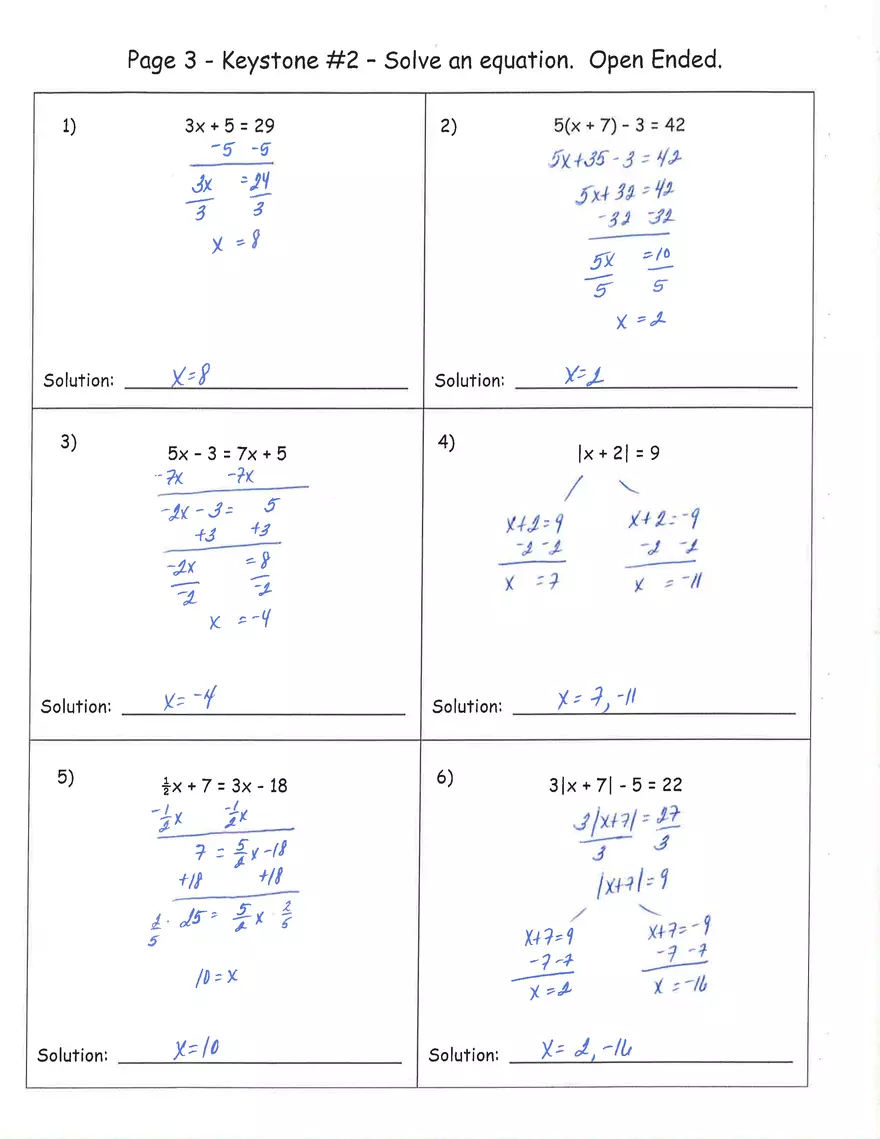 Page 3 - Keystone #2 – Solve an equation. Open Ended.
1) 3x + 5 = 29
-5 -5
3x = 24
3 3
x = 8
Solution: x=8
2) 5(x + 7) - 3 = 42
5x+35-3=42
5x+32=42
-32 -32
5x =10
5 5
x =2
Solution: x=2
3) 5x - 3 = 7x + 5
-7x -7x
-2x-3= 5
+3 +3
-2x =8
-2 -2
x =-4
Solution: x=-4
4) |x + 2| = 9
x+2=9 x+2=-9
-2 -2 -2 -2
x =7 x =-11
Solution: x=7,-11
5) ½x + 7 = 3x - 18
-1/2x -1/2x
7 = 5/2x-18
+18 +18
2/5 · 25 = 5/2x · 2/5
10=x
Solution: x=10
6) 3|x + 7| - 5 = 22
3|x+7| = 27
3 3
|x+7|=9
x+7=9 x+7=-9
-7 -7 -7 -7
x=2 x =-16
Solution: x= 2,-16